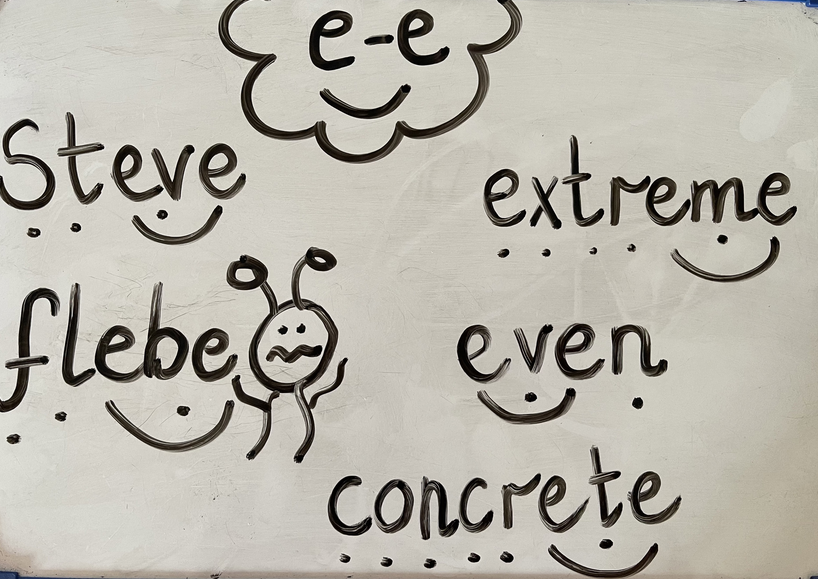 e-e
Steve
extreme
flebe
even
concrete